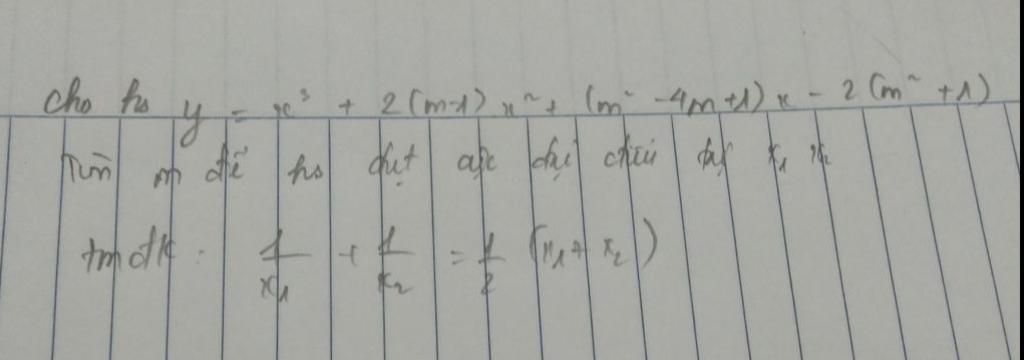 cho hs y = x³ + 2(m-1)x² + (m² - 4m + 1)x - 2(m² + 1)
Tìm m để hs đạt cực đại cực tiểu tại x₁ x₂
tmđk: 1/x₁ + 1/x₂ = 1/2 (x₁ + x₂)